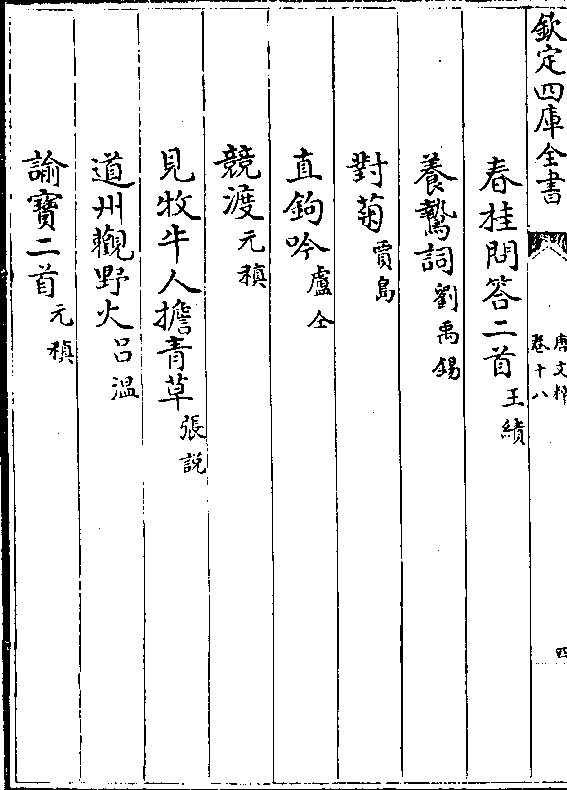 欽定四庫全書
唐文粹
卷十八
四
春桂問答二首 王績
養鷙詞 劉禹錫
對菊 賈島
直鉤吟 盧仝
競渡 元稹
見牧牛人擔青草 張說
道州觀野火 呂溫
諭寶二首 元稹